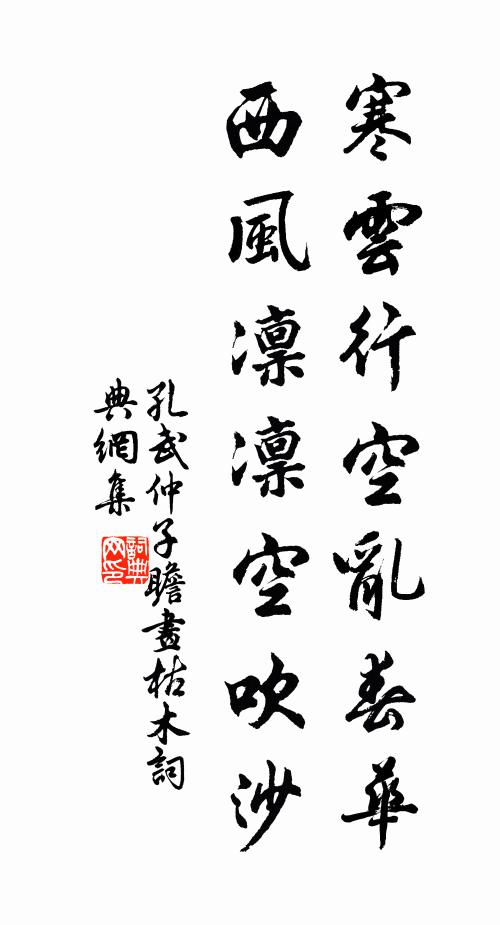 寒雲行空亂春華
西風凛凛空吹沙
孔武仲子瞻畫枯木詞
典網集
詞典
网印